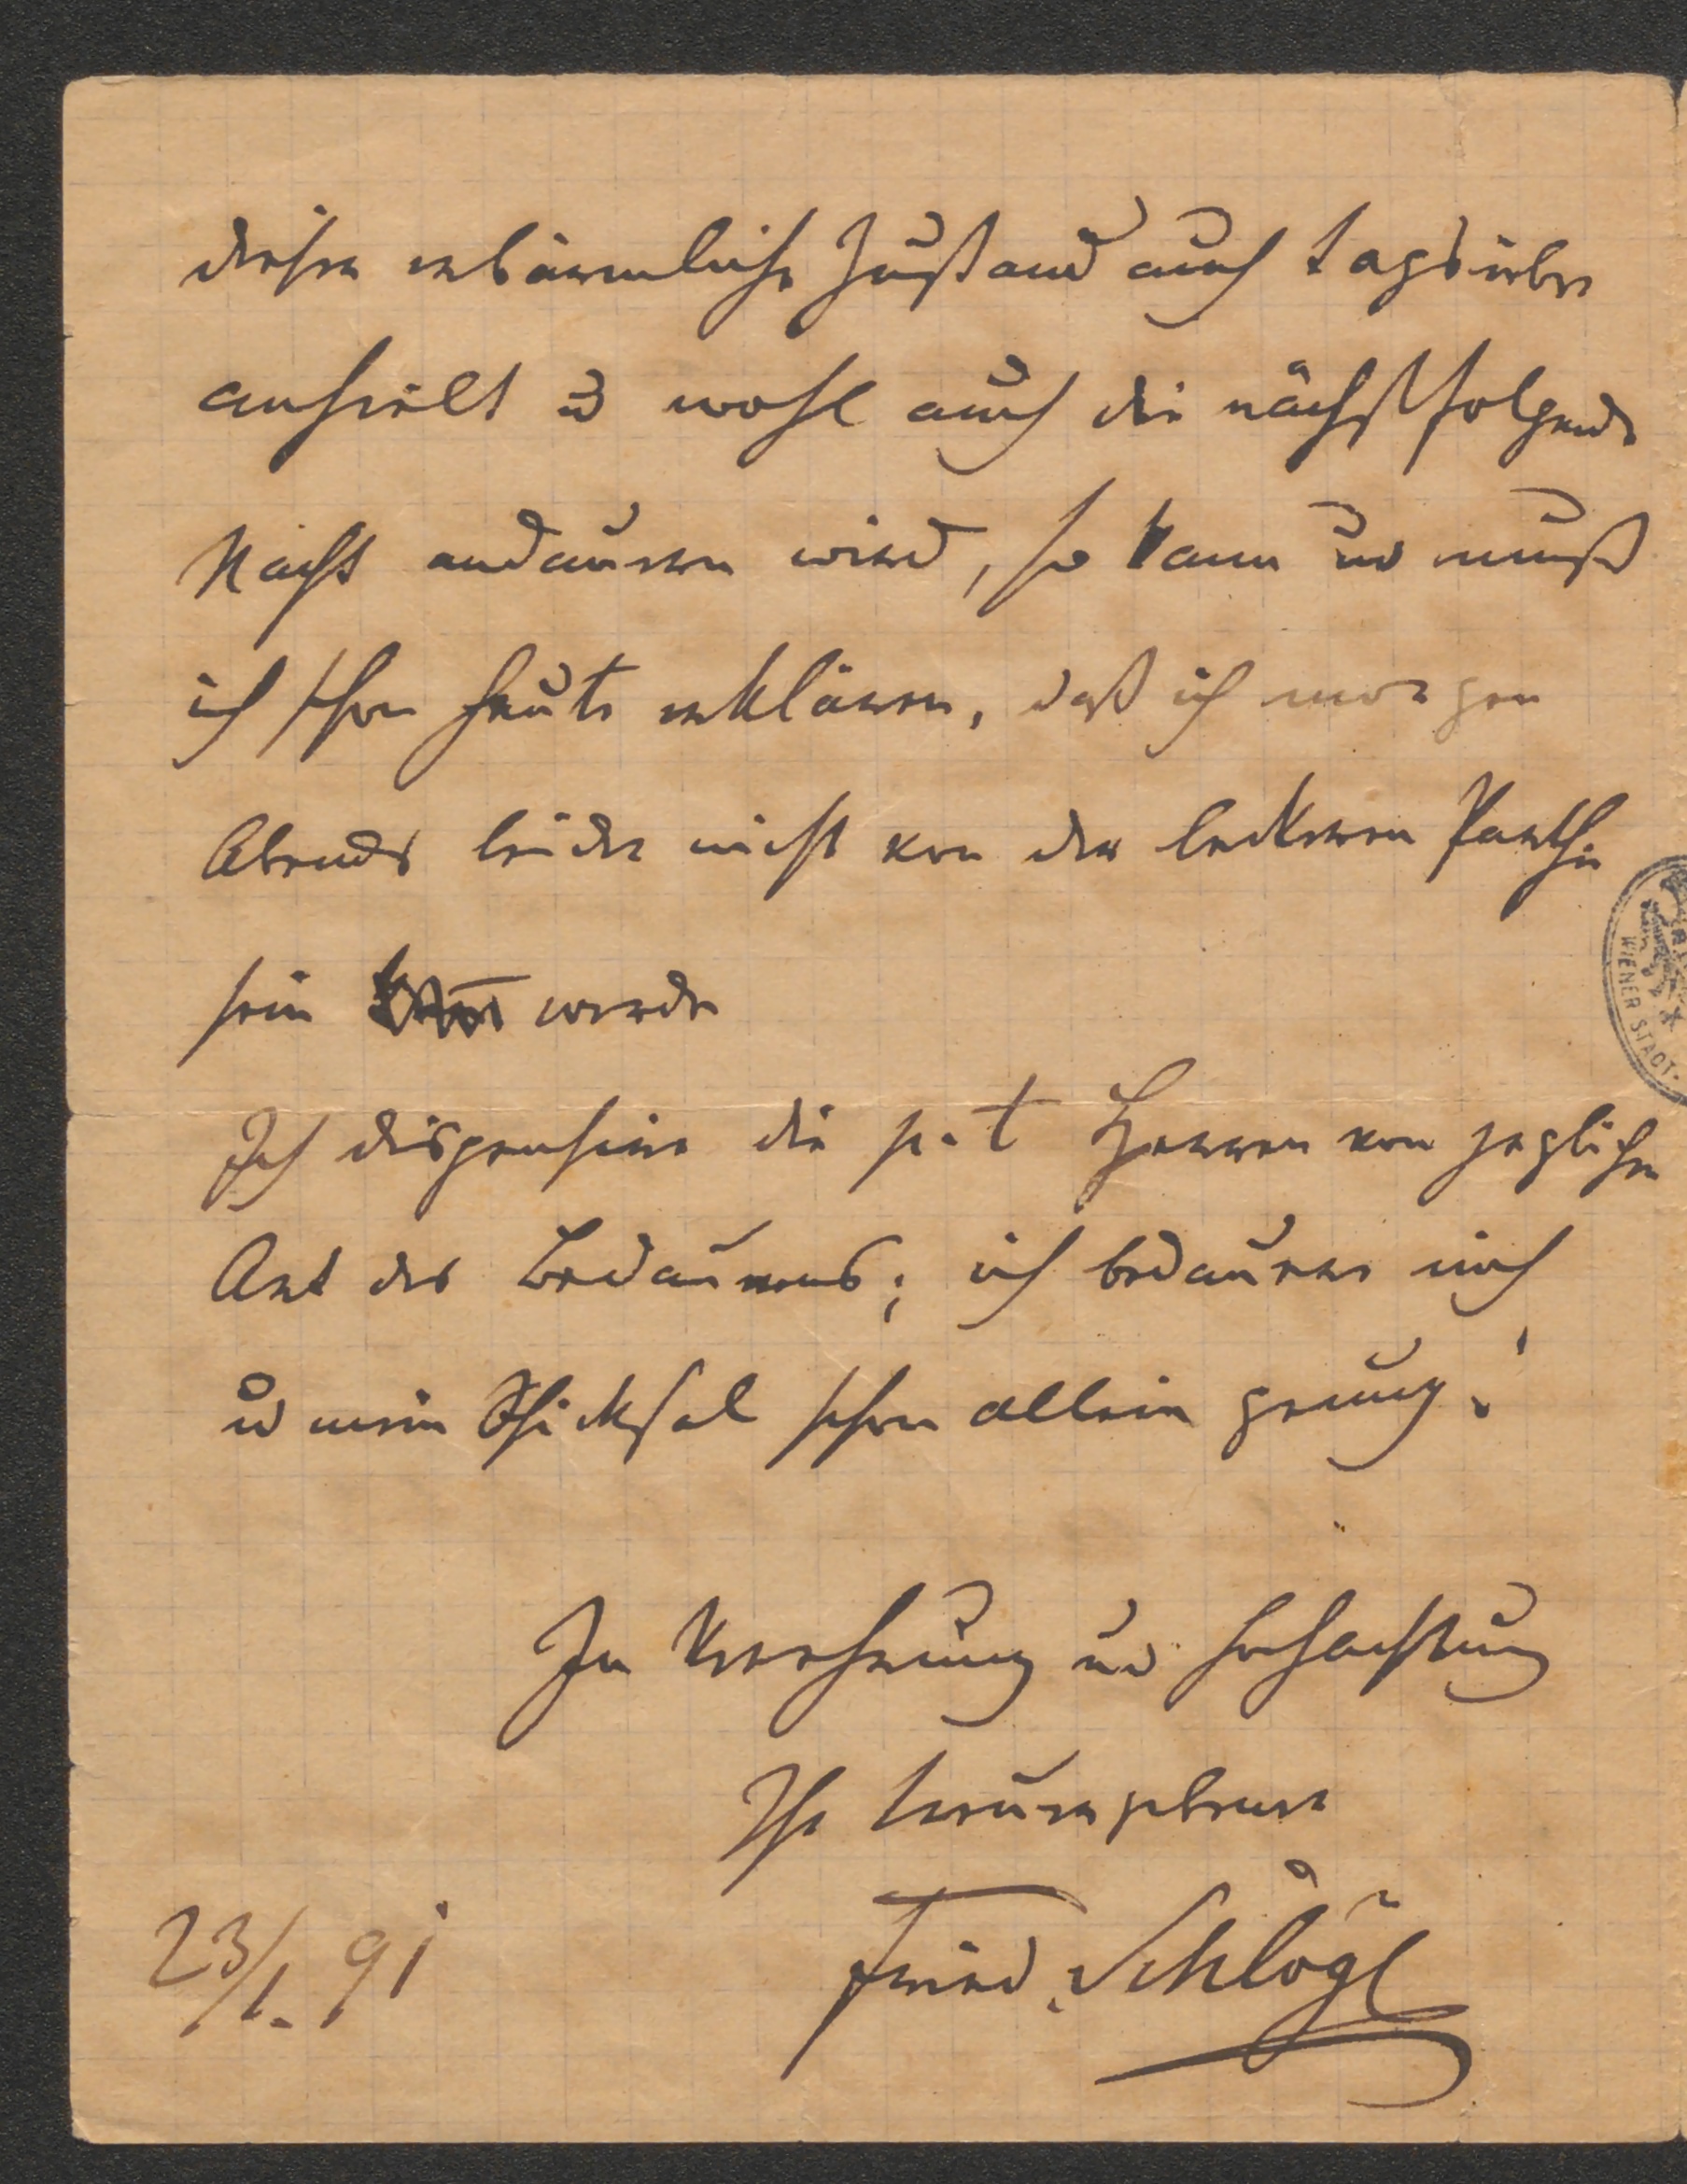 dieser erbärmliche Zustand auch tagsüber
anhielt u wohl auch die nächstfolgende
Nacht andauern wird, so kann und muß
ich schon heute erklären, daß ich morgen
Abends leider nicht von der leckeren Parthie
sein werde
Ich dispensire die p. t Herren von jeglicher
Art des Bedauerns; ich bedauere mich
u mein Schicksal schon allein genug!
In Verehrung und Hochachtung
Ihr treuergebener
Fried. Schlögl
23/1. 91
WIENER STADT-